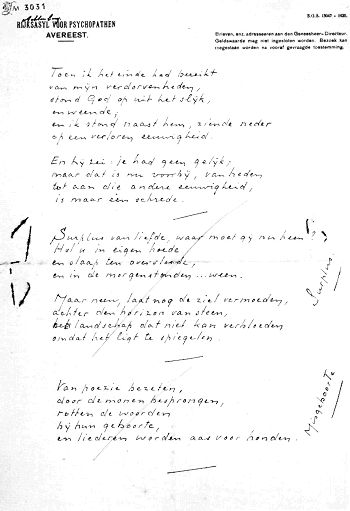 M 3031
RIJKSASYL VOOR PSYCHOPATHEN
AVEREEST.
Brieven, enz. adresseeren aan den Geneesheer-Directeur.
Geldswaarde mag niet ingesloten worden. Bezoek kan
toegelaten worden na vooraf gevraagde toestemming.
Toen ik het einde had bereikt
van mijn verdorvenheden,
stond God op uit het slijk,
en weende;
en ik stond naast hem, ziende neder
op een verloren eeuwigheid.
En hij zei: je had geen gelijk;
maar dat is nu voorbij, van heden
tot aan die andere eeuwigheid,
is maar één schrede.
Surplus van liefde, waar moet gij nu heen?
Hol u in eigen hoede
en slaap ten
en in de morgenstonden...ween.
Surplus
Maar neen, laat nog de ziel vermoeden,
achter den horizon van steen,
het landschap dat niet kan verbloeden
omdat het ligt te spiegelen.
Van poezie bezeten,
door demonen besprongen,
rotten de woorden
bij hun geboorte,
en liederen worden aas voor honden.
Misgeboorte